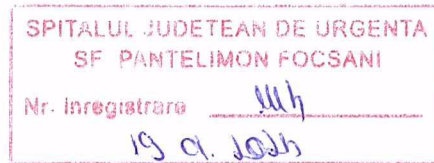 SPITALUL JUDETEAN DE URGENTA
SF PANTELIMON FOCSANI
Nr. Inregistrare
19